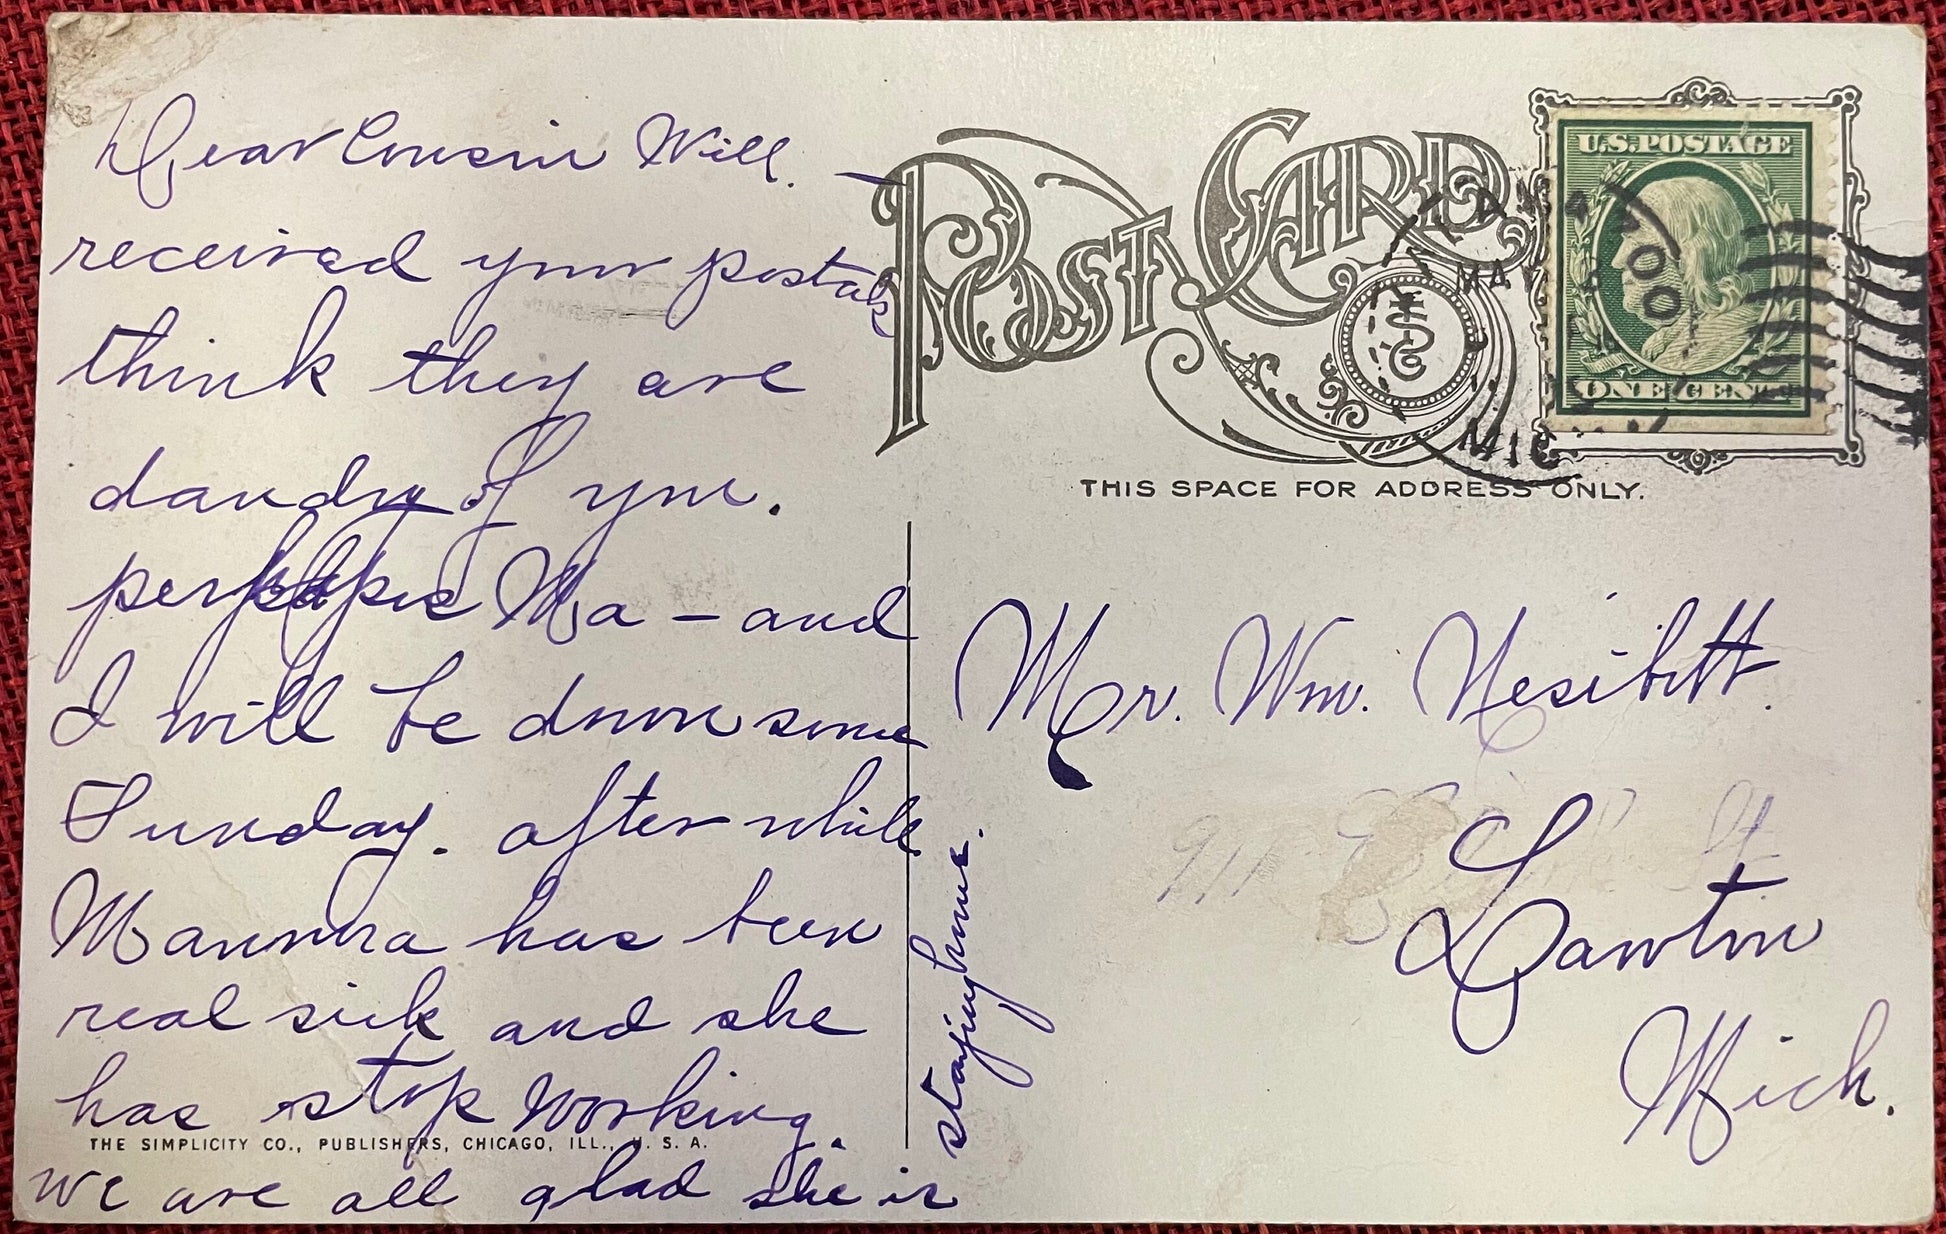 Dear Cousin Will. —
received your postals
think they are
dandy of you.
perhaps Ma – and
I will be down some
Sunday. after while
Mamma has been
real sick and she
has stop working.
we are all glad she is
staying home.
POST CARD
U.S. POSTAGE
ONE CENT
MAY
MIC
THIS SPACE FOR ADDRESS ONLY.
Mr. Wm. Nesibitt.
Lawton
Mich.
THE SIMPLICITY CO., PUBLISHERS, CHICAGO, ILL., U. S. A.